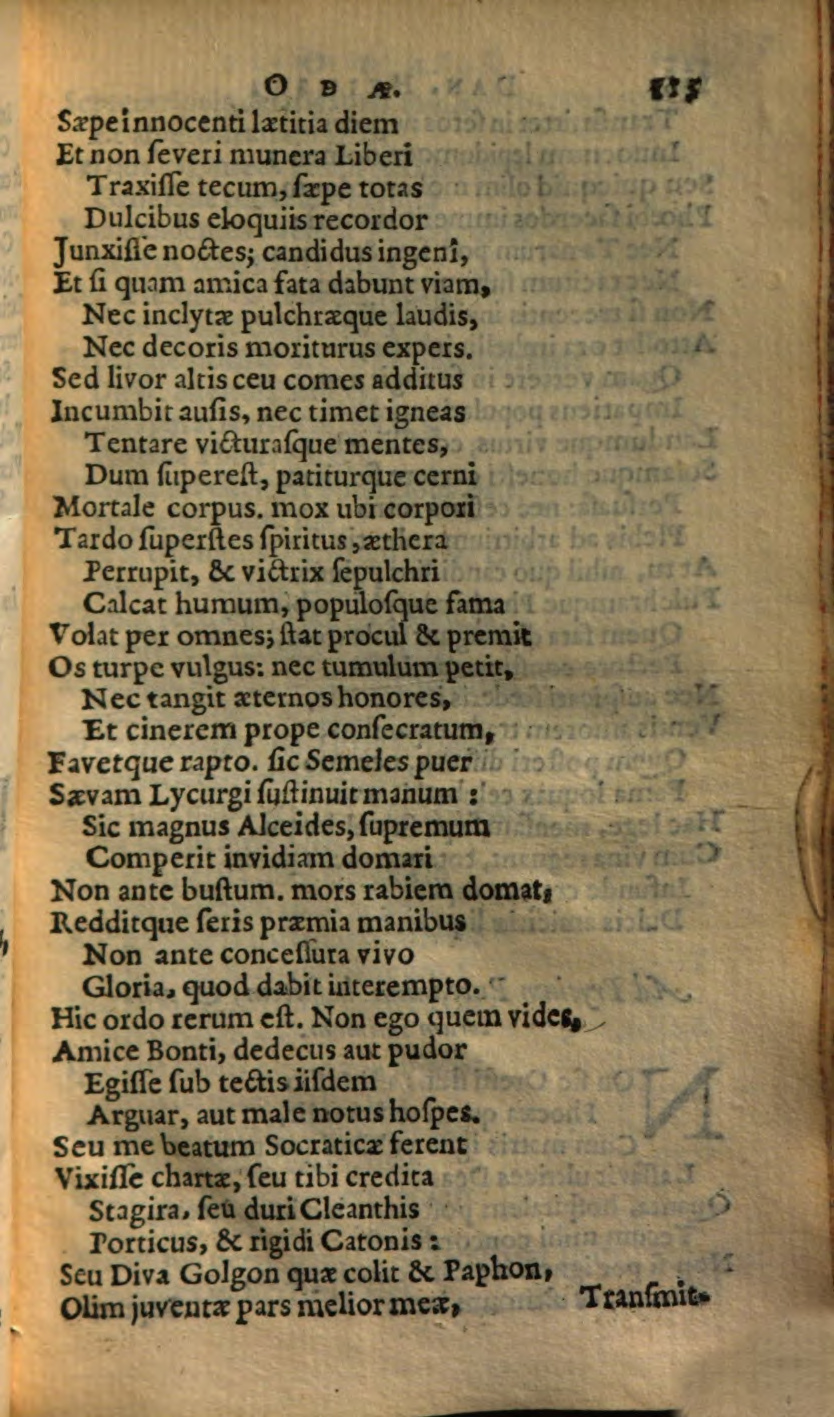 O D Æ.
Sæpe innocenti lætitia diem
Et non ſeveri munera Liberi
Traxiſſe tecum, ſæpe totas
Dulcibus eloquiis recordor
Junxiſſe noctes; candidus ingenî,
Et ſi quam amica fata dabunt viam,
Nec inclytæ pulchræque laudis,
Nec decoris moriturus expers.
Sed livor altis ceu comes additus
Incumbit auſis, nec timet igneas
Tentare victuraſque mentes,
Dum ſupereſt, patiturque cerni
Mortale corpus. mox ubi corpori
Tardo ſuperſtes ſpiritus, æthera
Perrupit, & victrix ſepulchri
Calcat humum, populoſque fama
Volat per omnes; ſtat procul & premit
Os turpe vulgus: nec tumulum petit,
Nec tangit æternos honores,
Et cinerem prope conſecratum,
Favetque rapto. ſic Semeles puer
Sævam Lycurgi ſuſtinuit manum :
Sic magnus Alceides, ſupremum
Comperit invidiam domari
Non ante buſtum. mors rabiem domat,
Redditque ſeris præmia manibus
Non ante conceſſura vivo
Gloria, quod dabit interempto.
Hic ordo rerum eſt. Non ego quem vides,
Amice Bonti, dedecus aut pudor
Egiſſe ſub tectis iiſdem
Arguar, aut male notus hoſpes.
Seu me beatum Socraticæ ferent
Vixiſſe chartæ, ſeu tibi credita
Stagira, ſeu duri Cleanthis
Porticus, & rigidi Catonis :
Seu Diva Golgon quæ colit & Paphon,
Olim juventæ pars melior meæ,
Tranſmit-